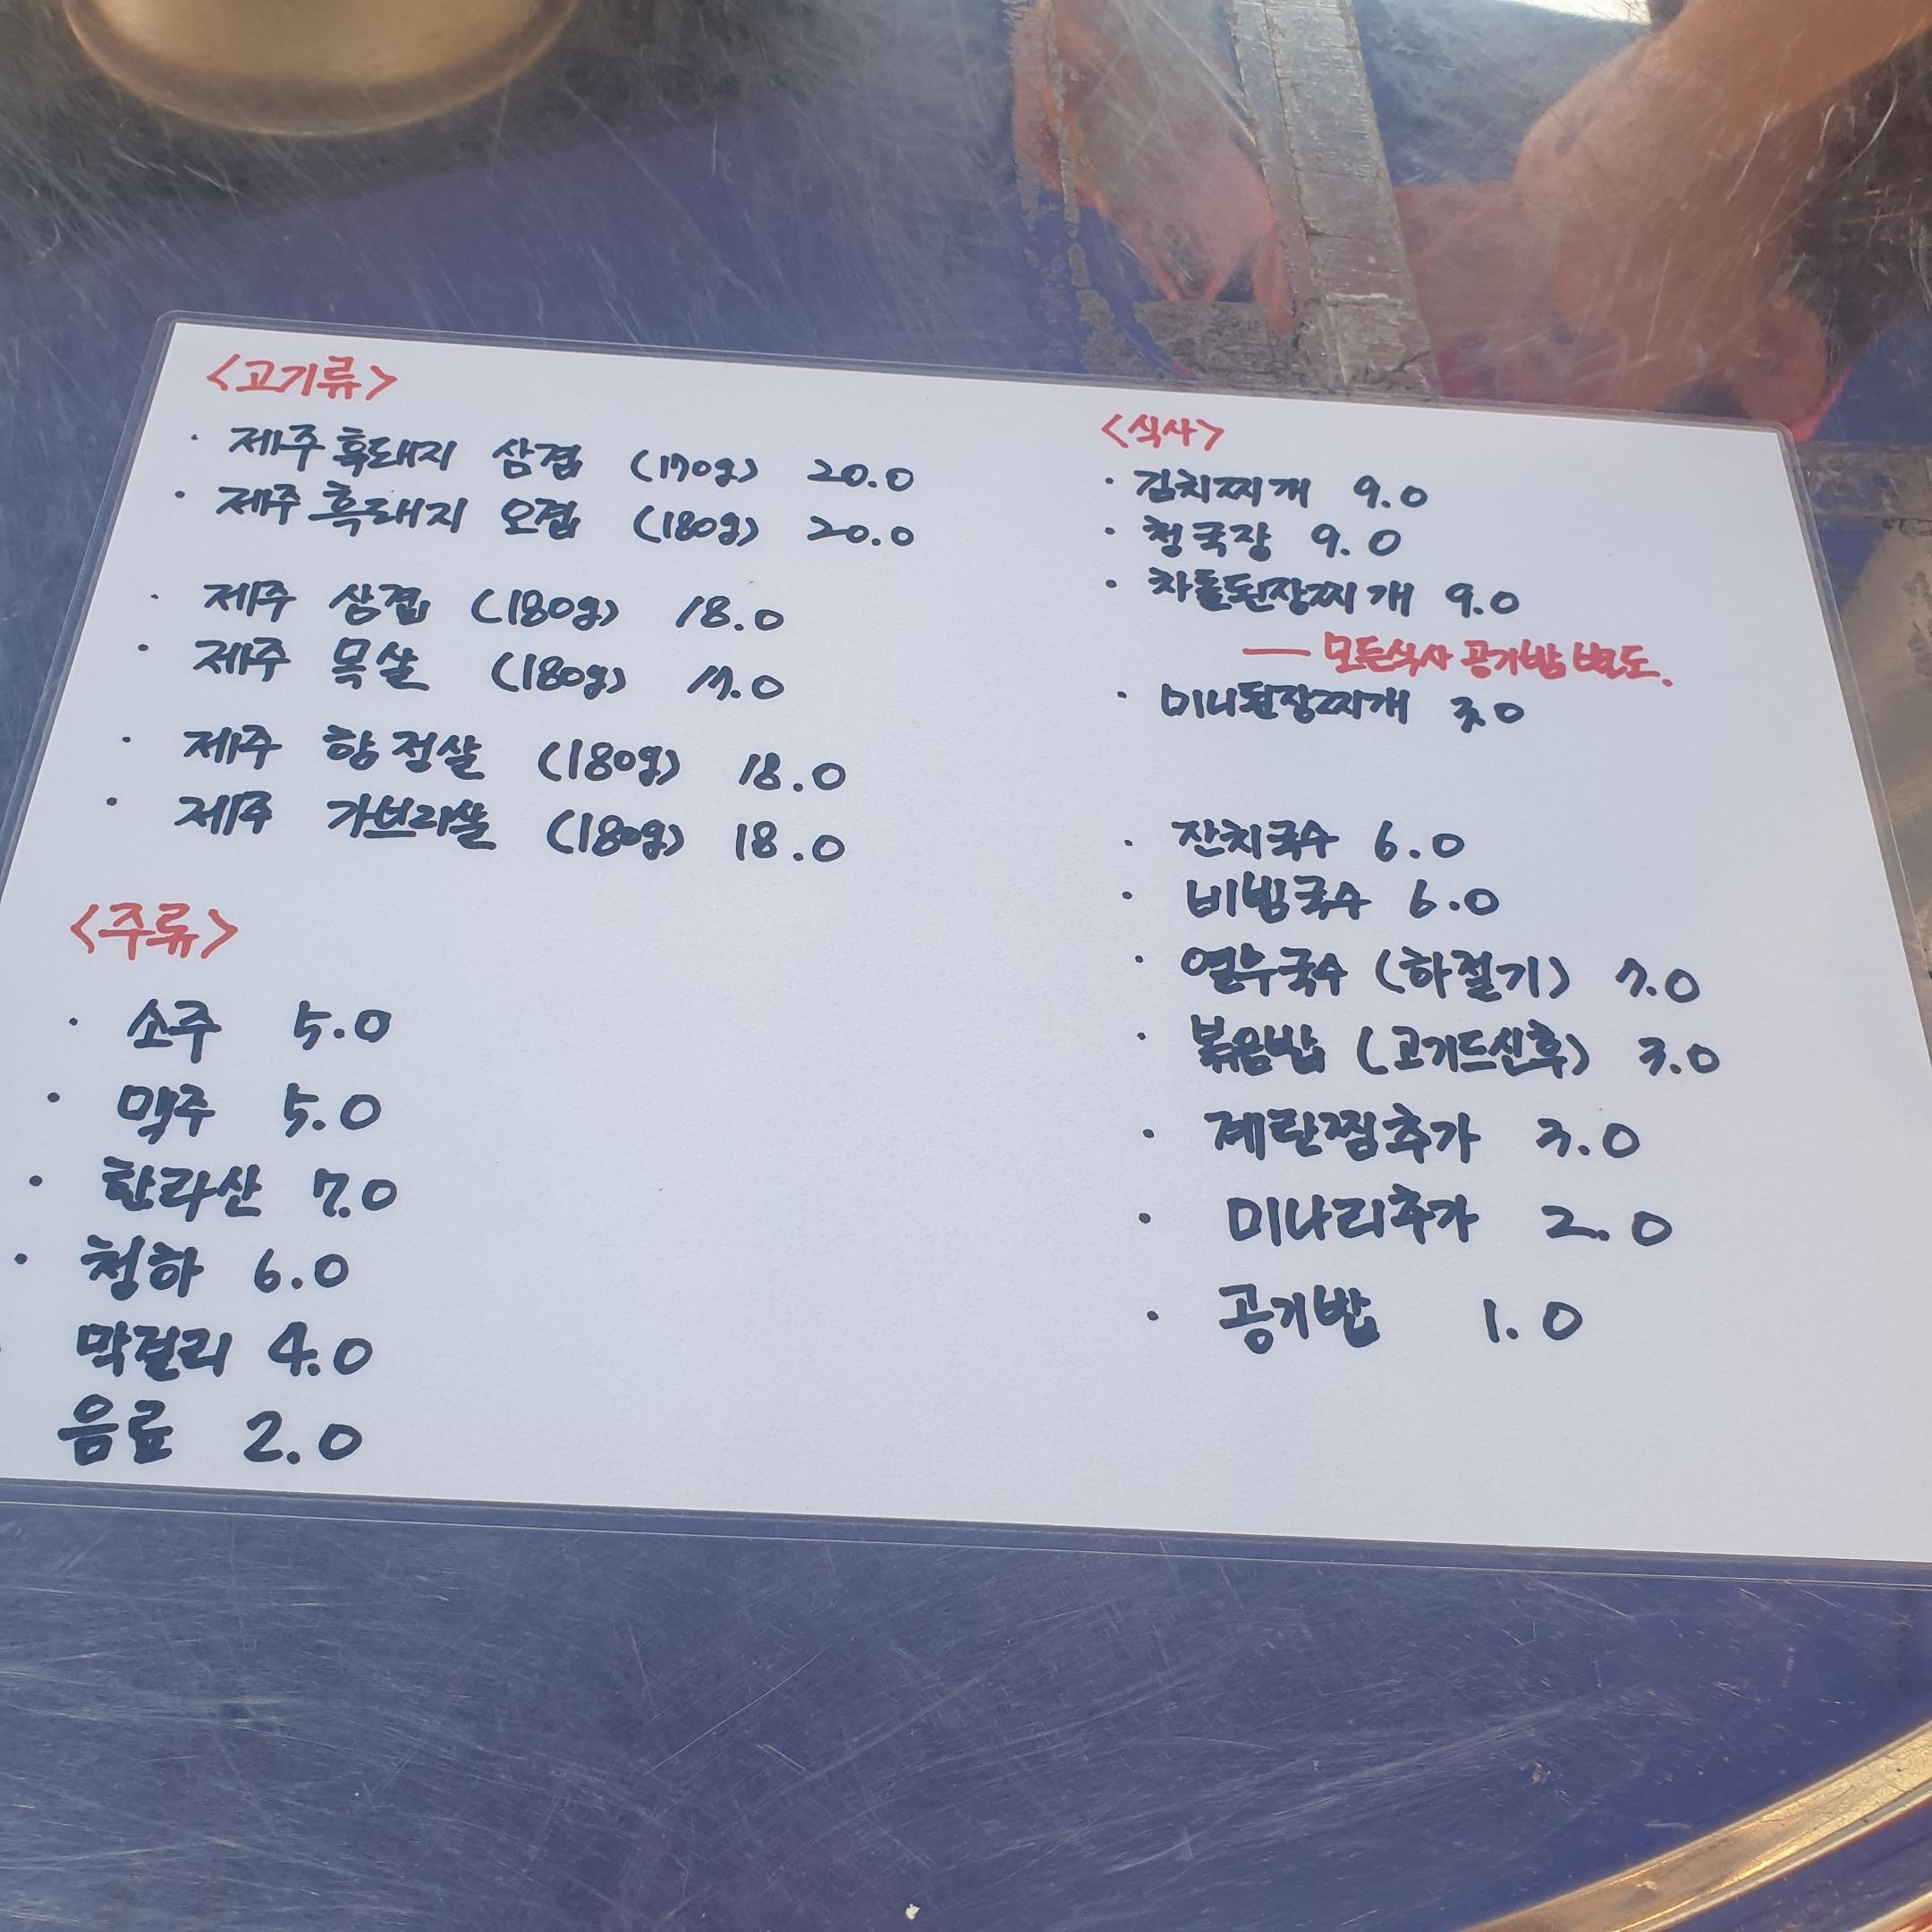 <고기류>
· 제주흑돼지 삼겹 (170g) 20.0
· 제주흑돼지 오겹 (180g) 20.0
· 제주 삼겹 (180g) 18.0
· 제주 목살 (180g) 17.0
· 제주 항정살 (180g) 18.0
· 제주 가브리살 (180g) 18.0
<주류>
· 소주 5.0
· 맥주 5.0
· 한라산 7.0
· 청하 6.0
· 막걸리 4.0
음료 2.0
<식사>
· 김치찌개 9.0
· 청국장 9.0
· 차돌된장찌개 9.0
— 모든식사 공기밥 별도.
· 미니된장찌개 3.0
· 잔치국수 6.0
· 비빔국수 6.0
· 열무국수 (하절기) 7.0
· 볶음밥 (고기드신후) 3.0
· 계란찜추가 3.0
· 미나리추가 2.0
· 공기밥 1.0